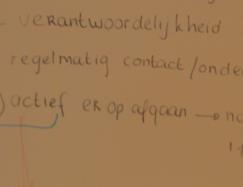 - verantwoordelijkheid
regelmatig contact /onde
) actief er op afgaan → na